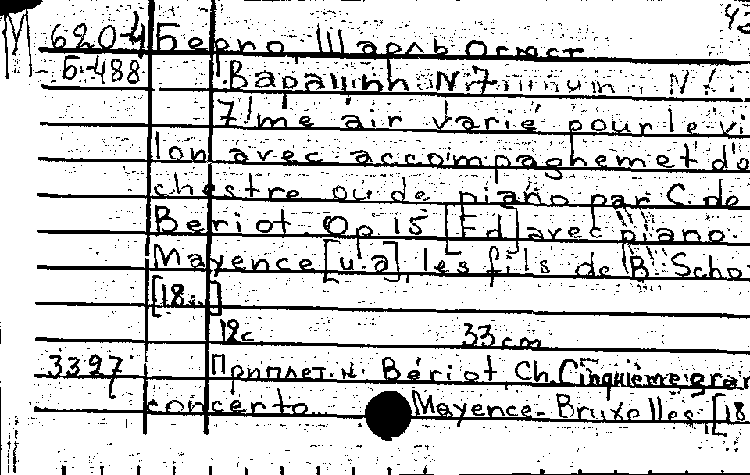 М 6204 Берио, Шарль Огюст 43
Б-488 Вариации N 7
7! me air varié pour le vi
lon avec accompaghemet d'o
chestre ou de piano par C. de
Beriot. Op 15 [Ed] avec piano.
Mayence [u.a], les fils de B. Scho
[18..]
12с 33 cm
3397 Приплет. к. Bériot, Ch. Cinquième gran
concerto Mayence-Bruxelles, [18